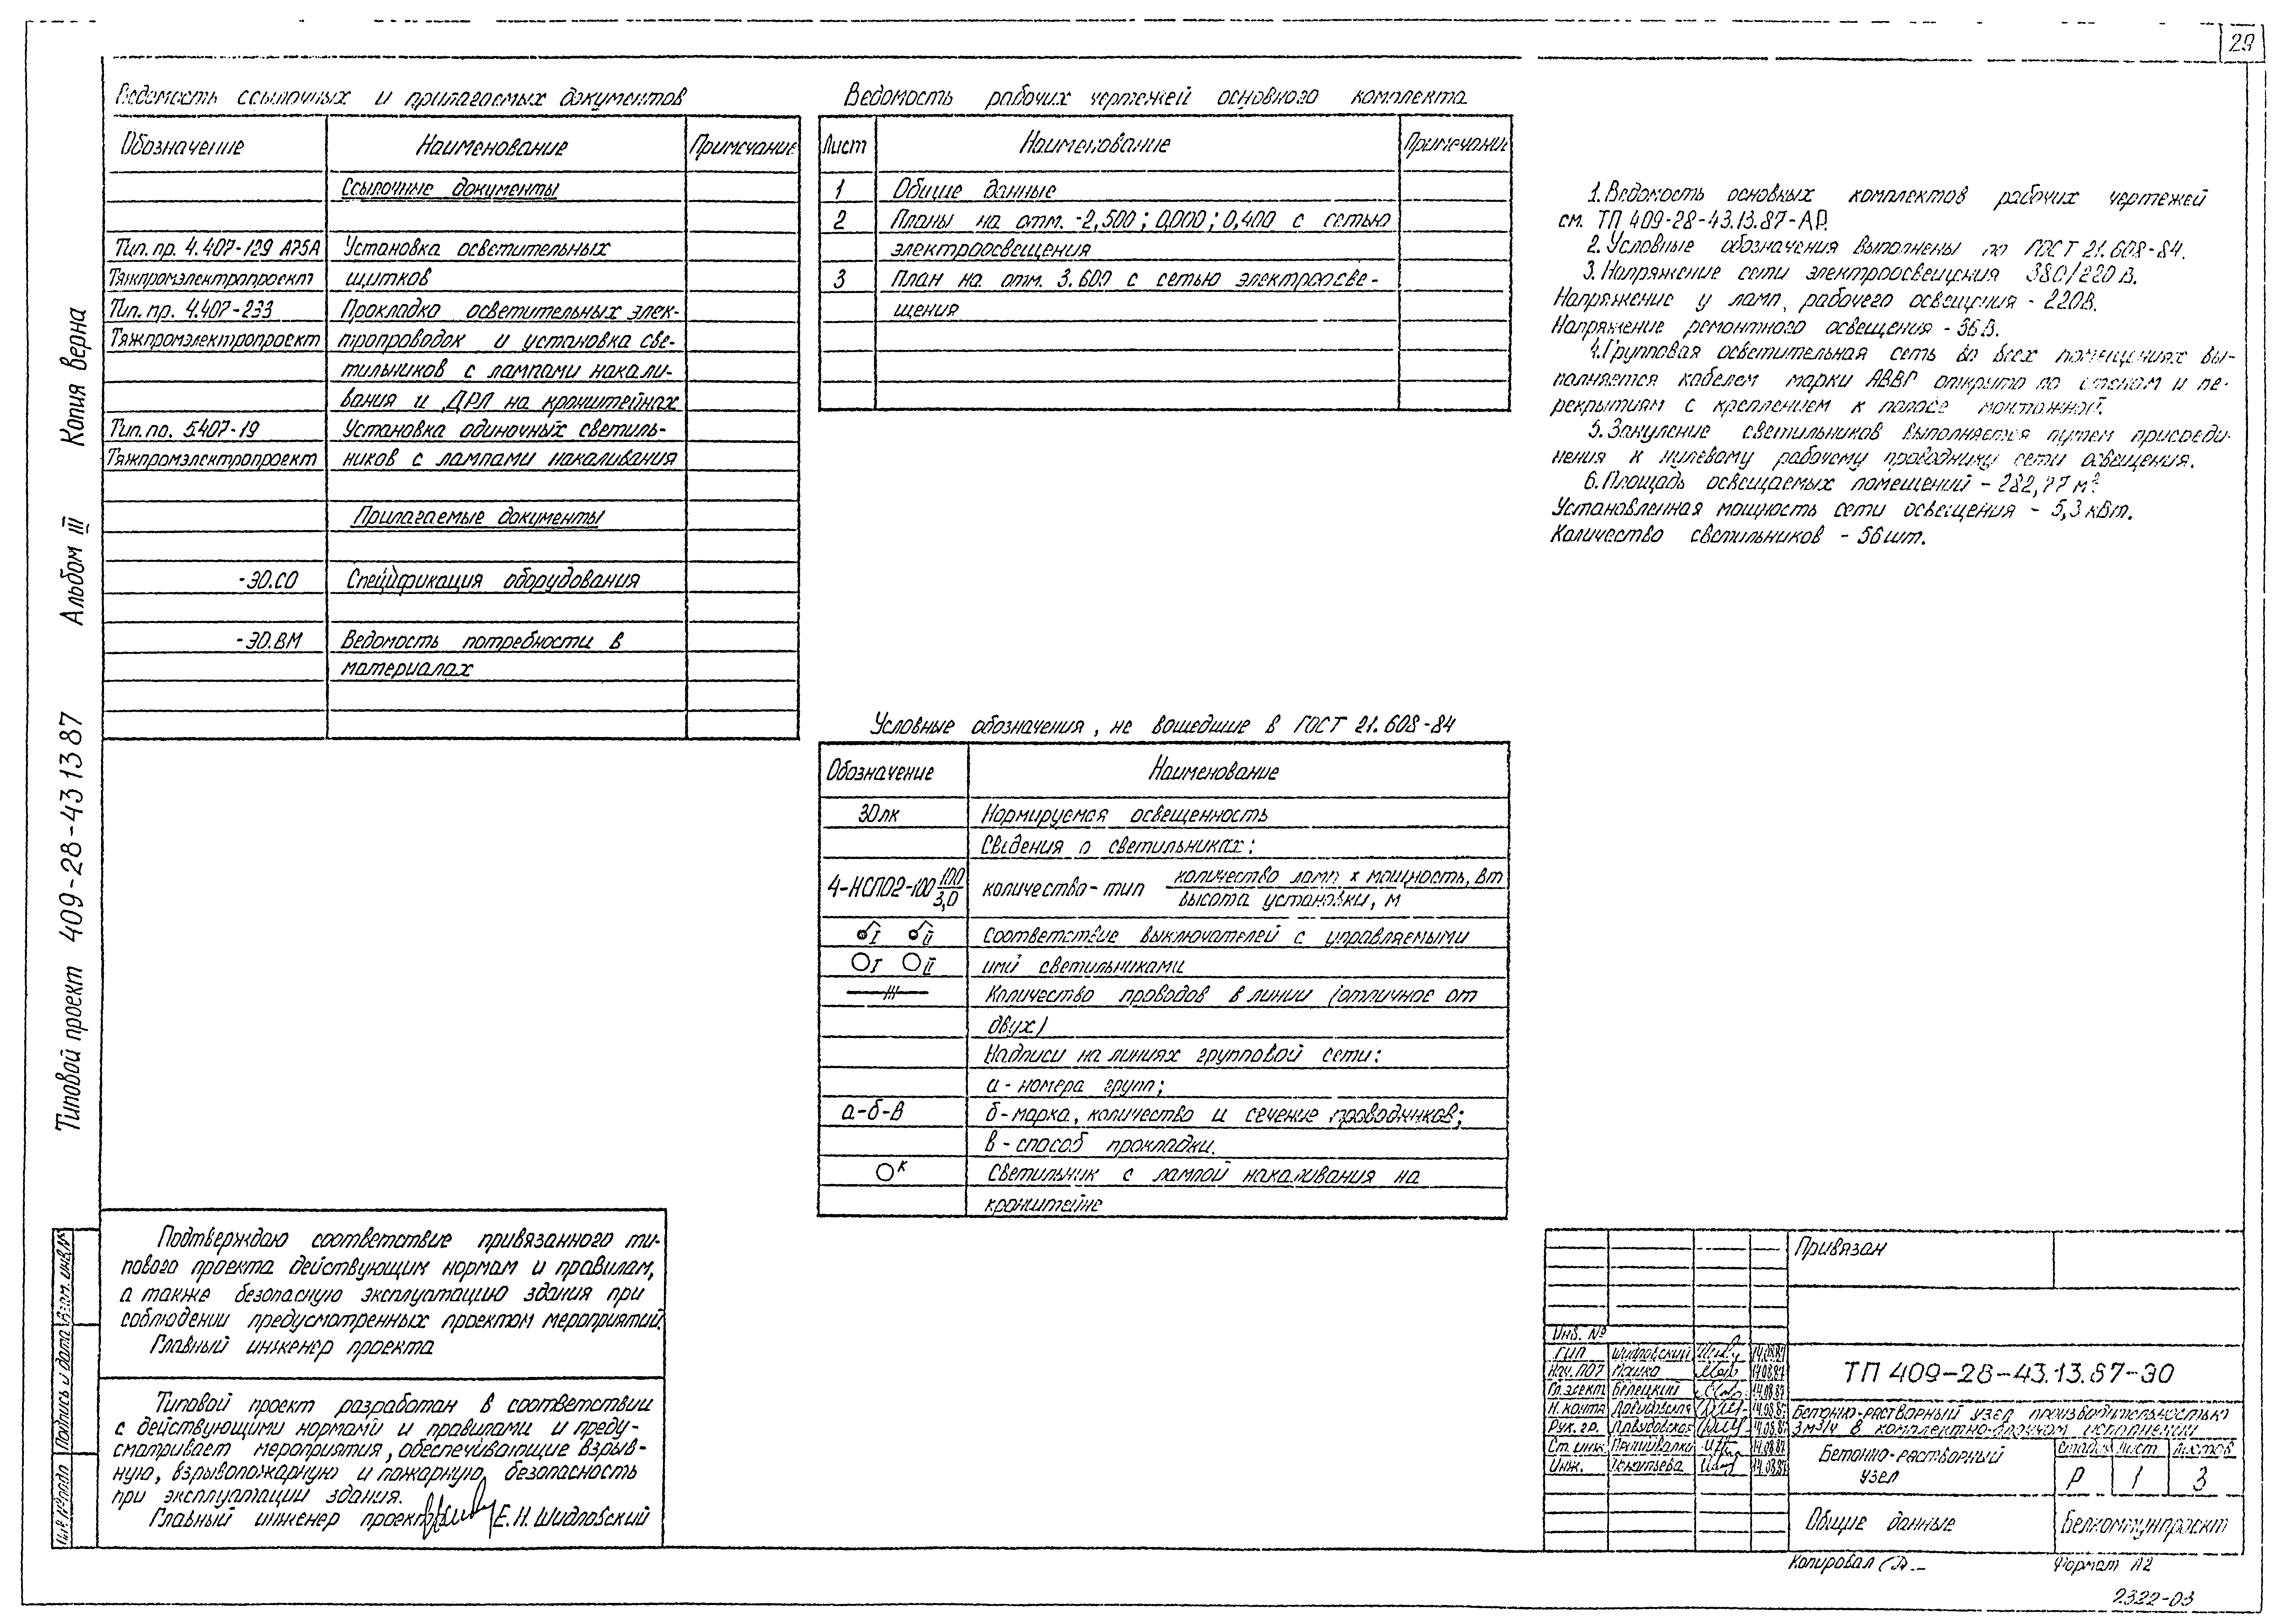 29
Ведомость ссылочных и прилагаемых документов
Обозначение Наименование Примечание
Ссылочные документы
Тип. пр. 4.407-129 А75А Установка осветительных
Тяжпромэлектропроект щитков
Тип. пр. 4.407-233 Прокладка осветительных элек-
Тяжпромэлектропроект тропроводок и установка све-
тильников с лампами накали-
вания и ДРЛ на кронштейнах
Тип. пр. 5.407-19 Установка одиночных светиль-
Тяжпромэлектропроект ников с лампами накаливания
Прилагаемые документы
-ЭО.СО Спецификация оборудования
-ЭО.ВМ Ведомость потребности в
материалах
Ведомость рабочих чертежей основного комплекта
Лист Наименование Примечание
1 Общие данные
2 Планы на отм. -2,500; 0,000; 0,400 с сетью
электроосвещения
3 План на отм. 3.600 с сетью электроосве-
щения
1. Ведомость основных комплектов рабочих чертежей
см. ТП 409-28-43.13.87-АР.
2. Условные обозначения выполнены по ГОСТ 21.608-84.
3. Напряжение сети электроосвещения 380/220 В.
Напряжение у ламп, рабочего освещения - 220В.
Напряжение ремонтного освещения - 36В.
4. Групповая осветительная сеть во всех помещениях вы-
полняется кабелем марки АВВГ открыто по стенам и пе-
рекрытиям с креплением к полосе монтажной.
5. Зануление светильников выполняется путем присоеди-
нения к нулевому рабочему проводнику сети освещения.
6. Площадь освещаемых помещений - 282,77 м².
Установленная мощность сети освещения - 5,3 кВт.
Количество светильников - 56 шт.
Условные обозначения, не вошедшие в ГОСТ 21.608-84
Обозначение Наименование
30лк Нормируемая освещенность
Сведения о светильниках:
4-НСП02-100 100/3,0 количество-тип количество ламп х мощность, Вт / высота установки, м
I II Соответствие выключателей с управляемыми
I II ими светильниками
Количество проводов в линии (отличное от
двух)
Надписи на линиях групповой сети:
а - номера групп;
а-б-в б - марка, количество и сечение проводников;
в - способ прокладки.
К Светильник с лампой накаливания на
кронштейне
Копия верна
Альбом III
Типовой проект 409-28-43 13 87
Взам. инв.№
Подпись и дата
Инв.№ подл
Подтверждаю соответствие привязанного ти-
пового проекта действующим нормам и правилам,
а также безопасную эксплуатацию здания при
соблюдении предусмотренных проектом мероприятий.
Главный инженер проекта
Типовой проект разработан в соответствии
с действующими нормами и правилами и преду-
сматривает мероприятия, обеспечивающие взрыв-
ную, взрывопожарную и пожарную безопасность
при эксплуатации здания.
Главный инженер проекта Е.Н. Шидловский
Привязан
Инв. №
ГИП Шидловский 14.08.87
Нач. ПО7 Мошко 14.08.87
Гл. элект Белецкий 14.08.87
Н. контр 14.08.87
Рук. гр. 14.08.87
Ст. инж. 14.08.87
Инж. 14.08.87
ТП 409-28-43.13.87-ЭО
Бетонно-растворный узел производительностью
3м³/ч в комплектно-блочном исполнении
Бетонно-растворный
узел
Стадия Лист Листов
Р 1 3
Общие данные
Белкоммунпроект
Копировал
Формат А2
2322-03